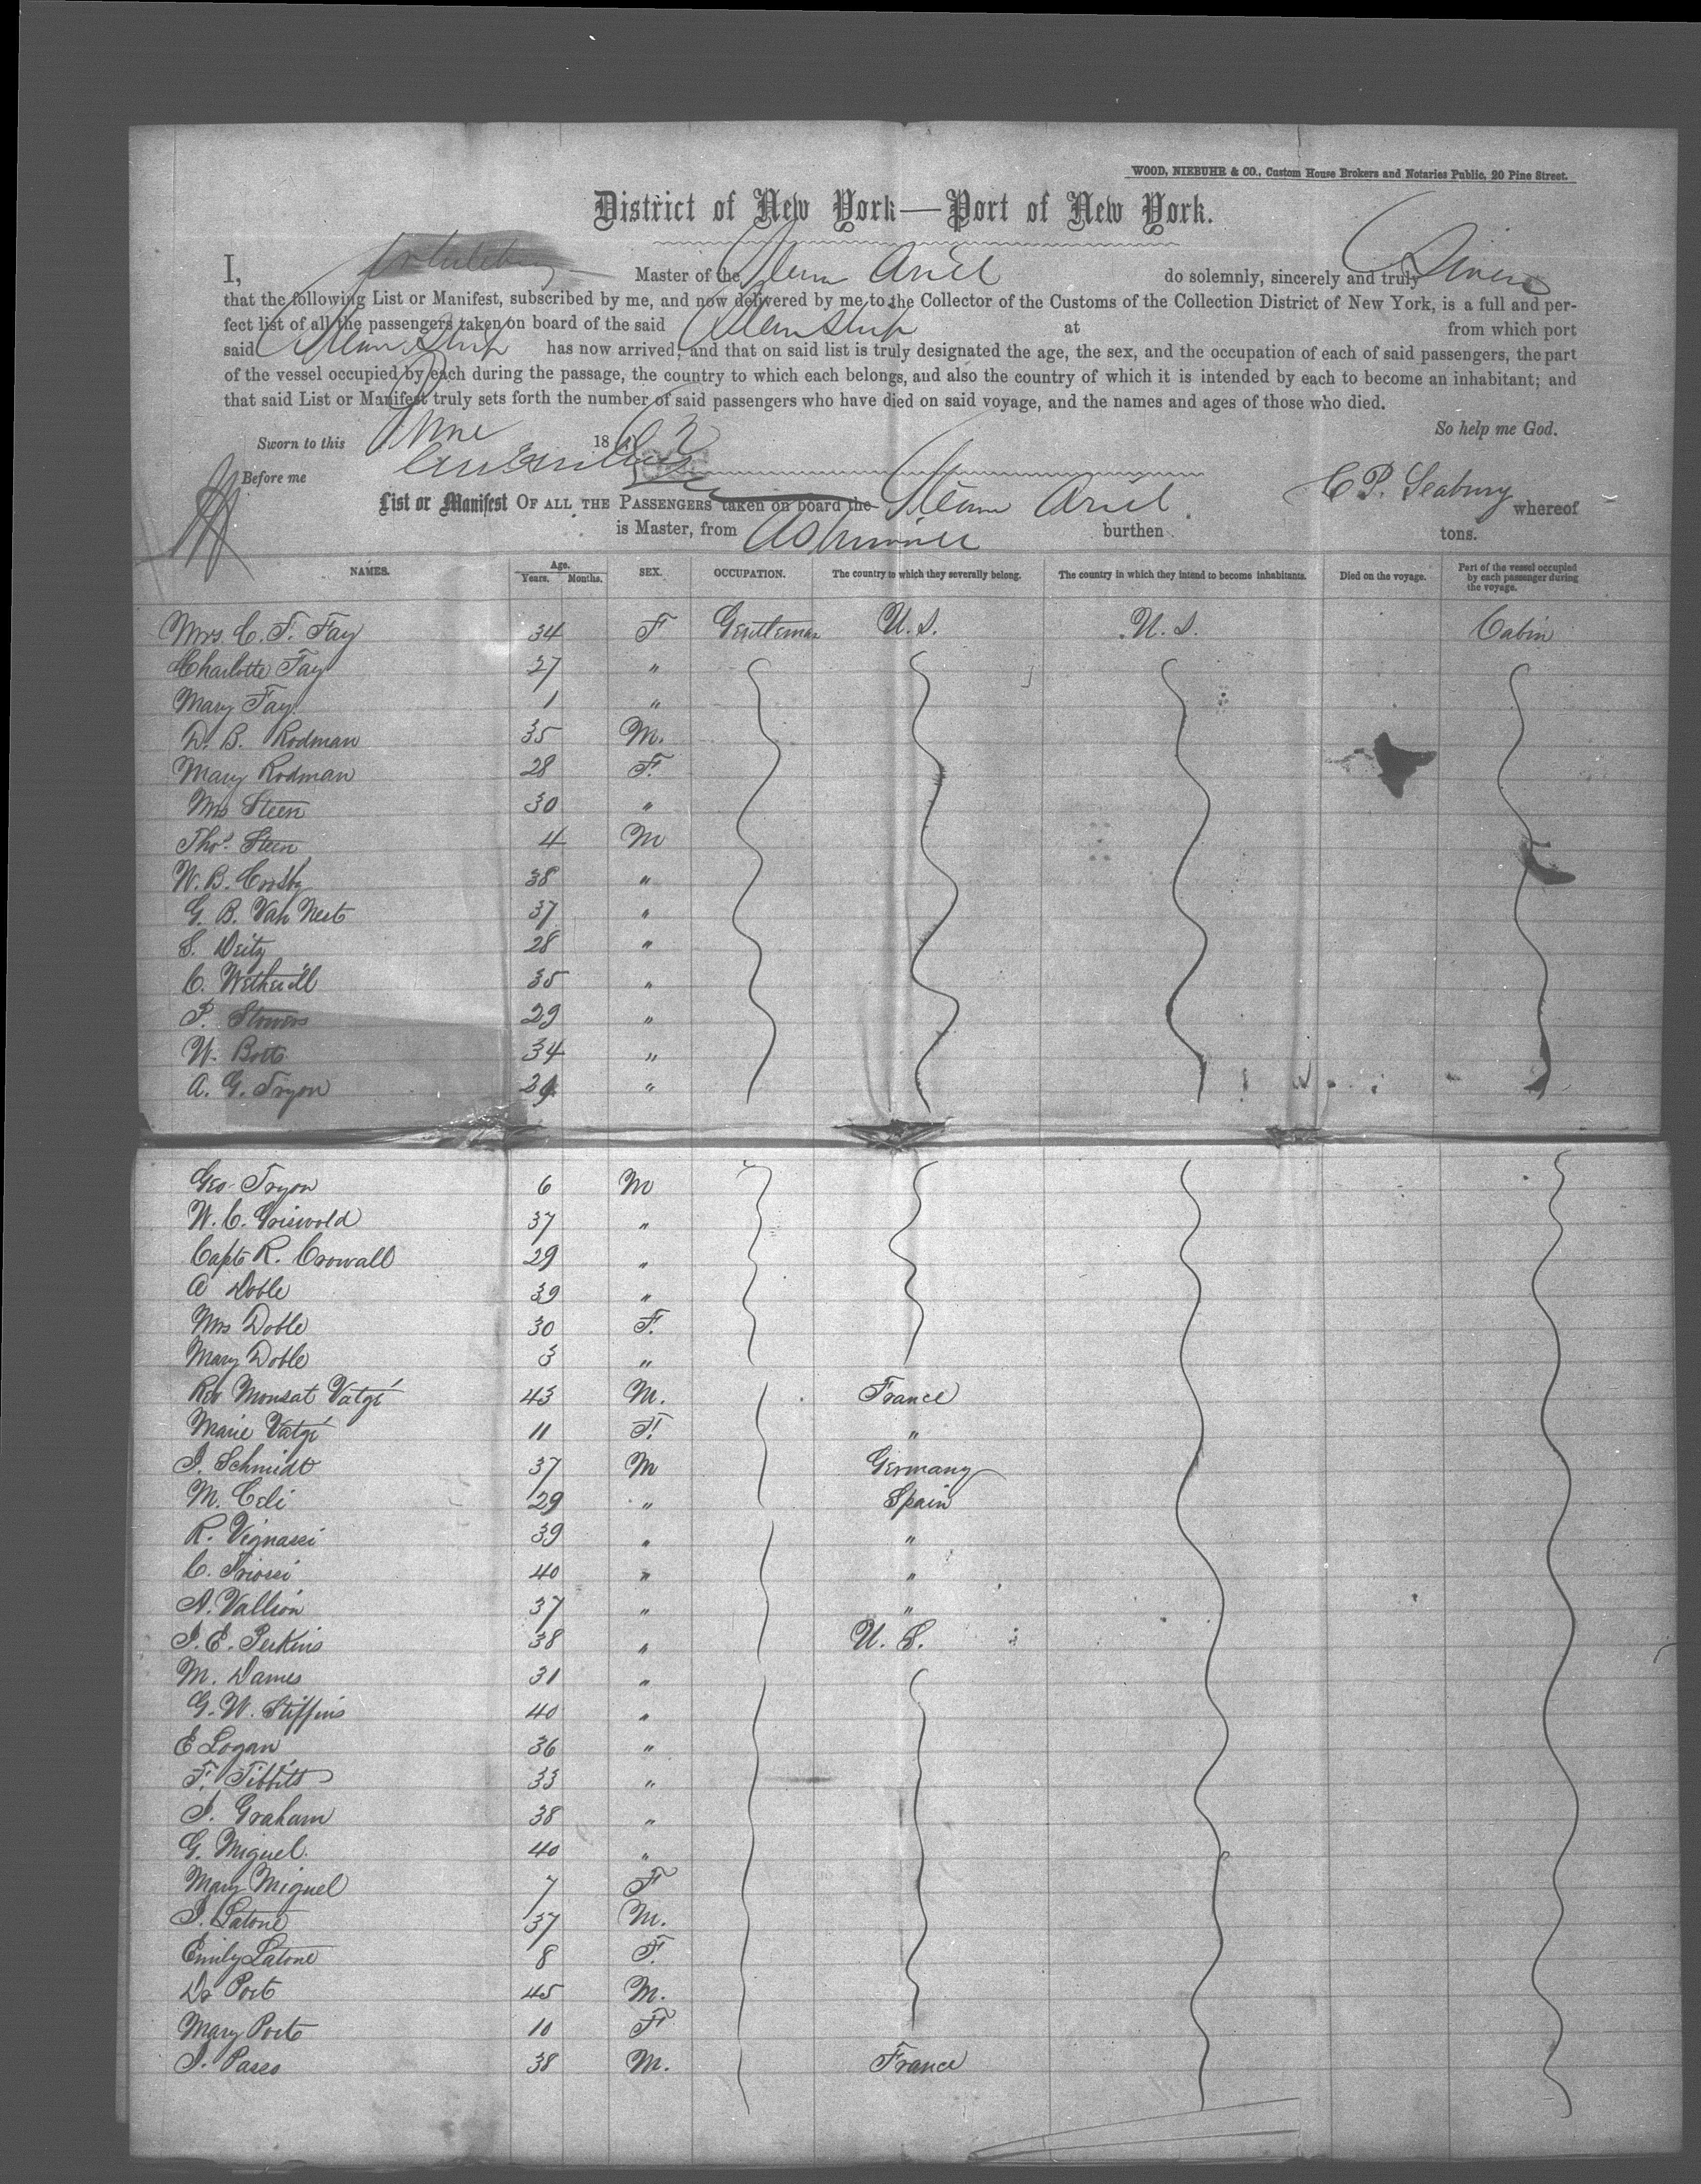 WOOD, NIEBUHR & CO., Custom House Brokers and Notaries Public, 20 Pine Street.
District of New York—Port of New York.
I, Master of the Steam Ariel do solemnly, sincerely and truly Swear
that the following List or Manifest, subscribed by me, and now delivered by me to the Collector of the Customs of the Collection District of New York, is a full and per-
fect list of all the passengers taken on board of the said Steam Ship at from which port
said Steam Ship has now arrived; and that on said list is truly designated the age, the sex, and the occupation of each of said passengers, the part
of the vessel occupied by each during the passage, the country to which each belongs, and also the country of which it is intended by each to become an inhabitant; and
that said List or Manifest truly sets forth the number of said passengers who have died on said voyage, and the names and ages of those who died.
So help me God.
Sworn to this June 1863
Before me
List or Manifest OF ALL THE PASSENGERS taken on board the Steam Ariel C P. Seabury whereof
is Master, from Aspinwall burthen tons.
NAMES. Age. Years. Months. SEX. OCCUPATION. The country to which they severally belong. The country in which they intend to become inhabitants. Died on the voyage. Part of the vessel occupied by each passenger during the voyage.
Mrs. C. F. Fay 34 F Gentleman U. S. U. S. Cabin
Charlotte Fay 27 "
Mary Fay 1 "
D. B. Rodman 35 M.
Mary Rodman 28 F.
Mrs Steen 30 "
Thos. Steen 4 M
W. B. Crosby 38 "
G. B. Van Nest 37 "
S. Deitz 28 "
C. Wetherill 35 "
P. Stowers 29 "
W. Botts 34 "
A. G. Tryon 29 "
Geo. Tryon 6 M
W. C. Griswold 37 "
Capt R. Crowall 29 "
A Doble 39 "
Mrs Doble 30 F.
Mary Doble 3 "
Rev Monsat Vatgé 43 M. France
Marie Vatgé 11 F. "
J. Schmidt 37 M Germany
M. Celi 29 " Spain
R. Vignassi 39 " "
C. Friossi 40 " "
A. Vallion 37 " "
J. E. Perkins 38 " U. S.
M. Dames 31 "
G. W. Stiffins 40 "
E Logan 36 "
F. Tibbitts 33 "
J. Graham 38 "
G. Miguel 40 "
Mary Miguel 7 F
J. Latone 37 M.
Emily Latone 8 F.
Dr Port 45 M.
Mary Port 10 F
J. Pares 38 M. France